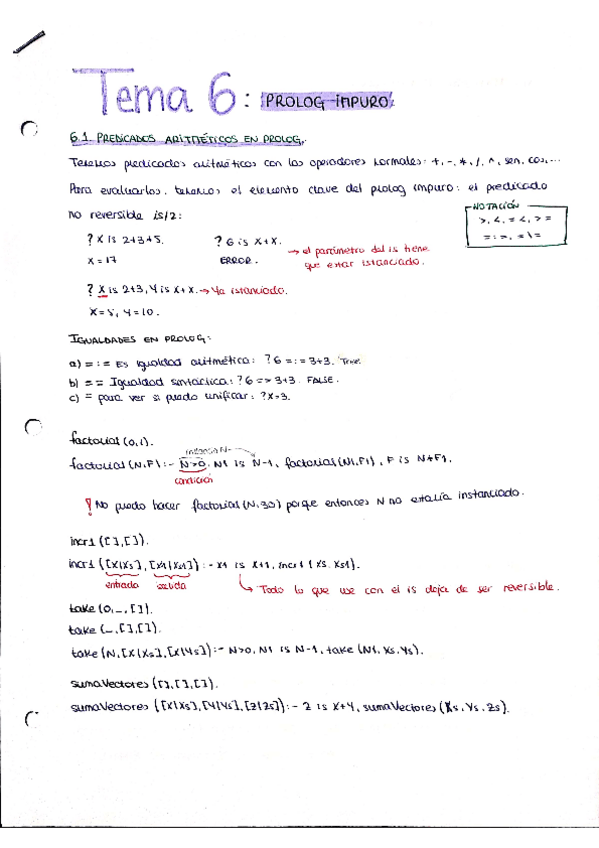 Tema 6: PROLOG IMPURO
6.1. PREDICADOS ARITMÉTICOS EN PROLOG.
Tenemos predicados aritméticos con los operadores normales: +, -, *, /, ^, sen, cos,...
Para evaluarlos, tenemos el elemento clave del prolog impuro: el predicado
no reversible is/2:
NOTACIÓN
>, <, =<, >=
=:=, =\=
? X is 2+3*5.
X = 17
? 6 is X+X.
ERROR.
→ el parámetro del is tiene
que estar istanciado.
? X is 2+3, Y is X+X. → Ya istanciado.
X=5, Y=10.
IGUALDADES EN PROLOG:
a) =:= Es igualdad aritmética: ? 6 =:= 3+3. True.
b) == Igualdad sintáctica: ? 6 == 3+3. FALSE.
c) = para ver si puedo unificar: ? X=3.
factorial (0,1).
instancia N
factorial (N,F) :- N>0, N1 is N-1, factorial (N1,F1), F is N*F1.
condición
! No puedo hacer factorial (N,30) porque entonces N no estaría instanciado.
incr1 ([],[]).
incr1 ([X|Xs],[X1|Xs1]) :- X1 is X+1, incr1 (Xs, Xs1).
entrada salida
↳ Todo lo que use con el is deja de ser reversible.
take (0,_,[]).
take (_,[],[]).
take (N,[X|Xs],[X|Ys]) :- N>0, N1 is N-1, take (N1, Xs, Ys).
sumaVectores ([],[],[]).
sumaVectores ([X|Xs],[Y|Ys],[Z|Zs]) :- Z is X+Y, sumaVectores (Xs, Ys, Zs).